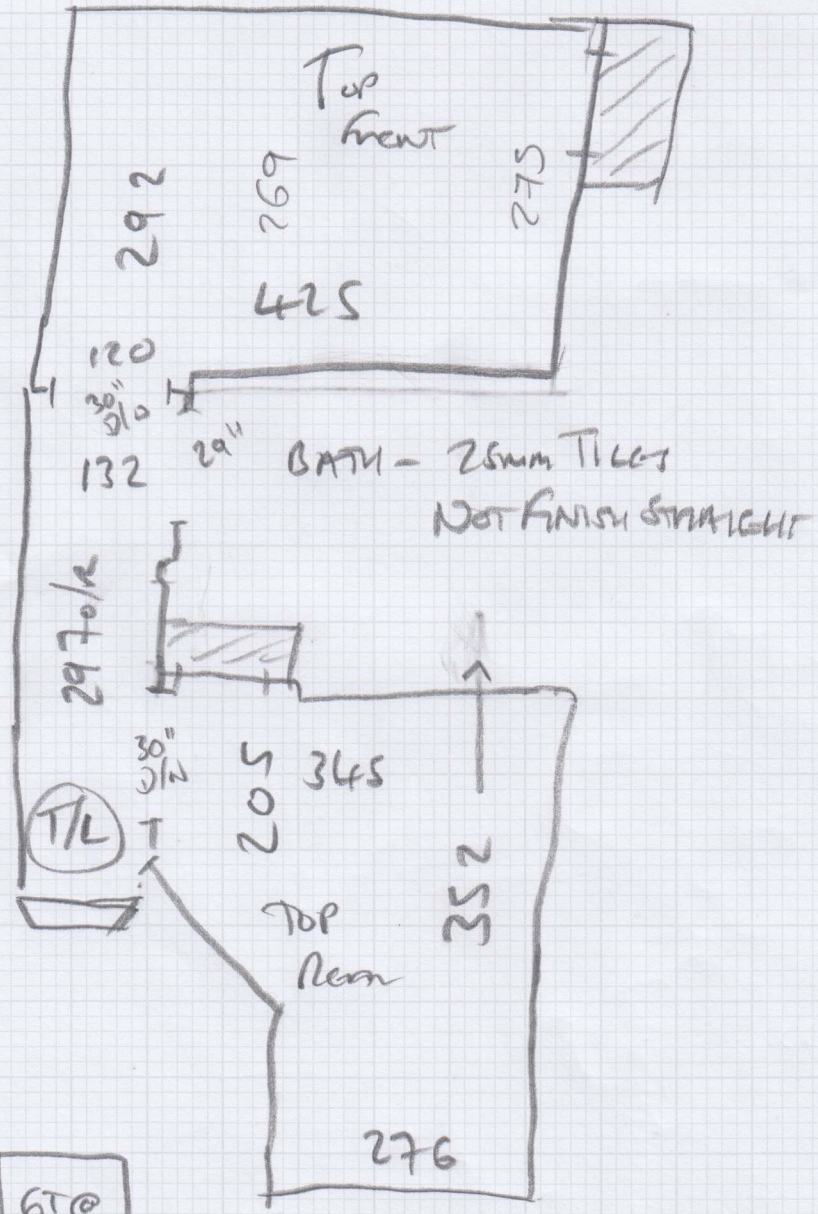 Top
Front
292
269
275
425
120
30"
D/O
132
29"
BATH - 25mm TILES
NOT FINISH STRAIGHT
297 O/R
30"
205
345
T/L
352
TOP
Rear
276